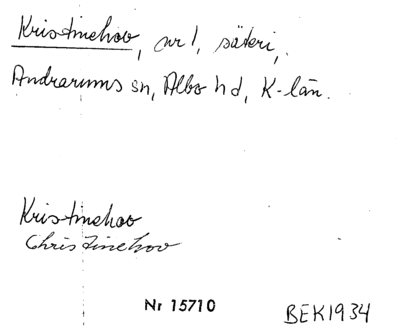 Kristinehov, nr 1, säteri,
Andrarums sn, Albo hd, K-län.
Kristinehov
Christinehov
Nr 15710
BEK1934